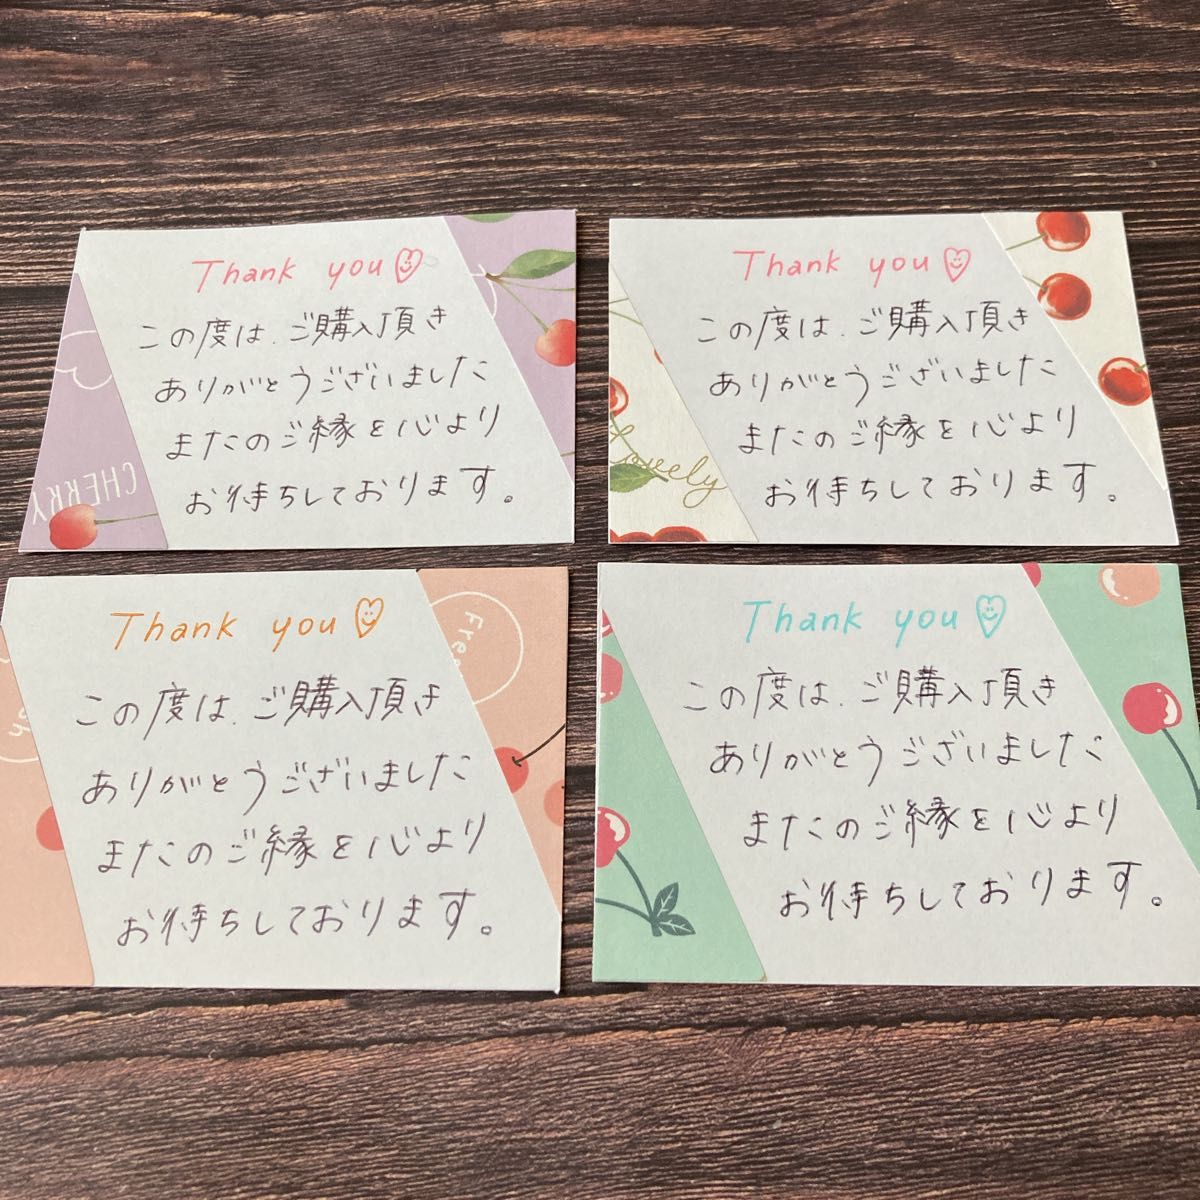 Thank you
この度は、ご購入頂き
ありがとうございました
またのご縁を心より
お待ちしております。
CHERRY
Thank you
この度は、ご購入頂き
ありがとうございました
またのご縁を心より
お待ちしております。
Lovely
Thank you
この度は、ご購入頂き
ありがとうございました
またのご縁を心より
お待ちしております。
Thank you
この度は、ご購入頂き
ありがとうございました
またのご縁を心より
お待ちしております。